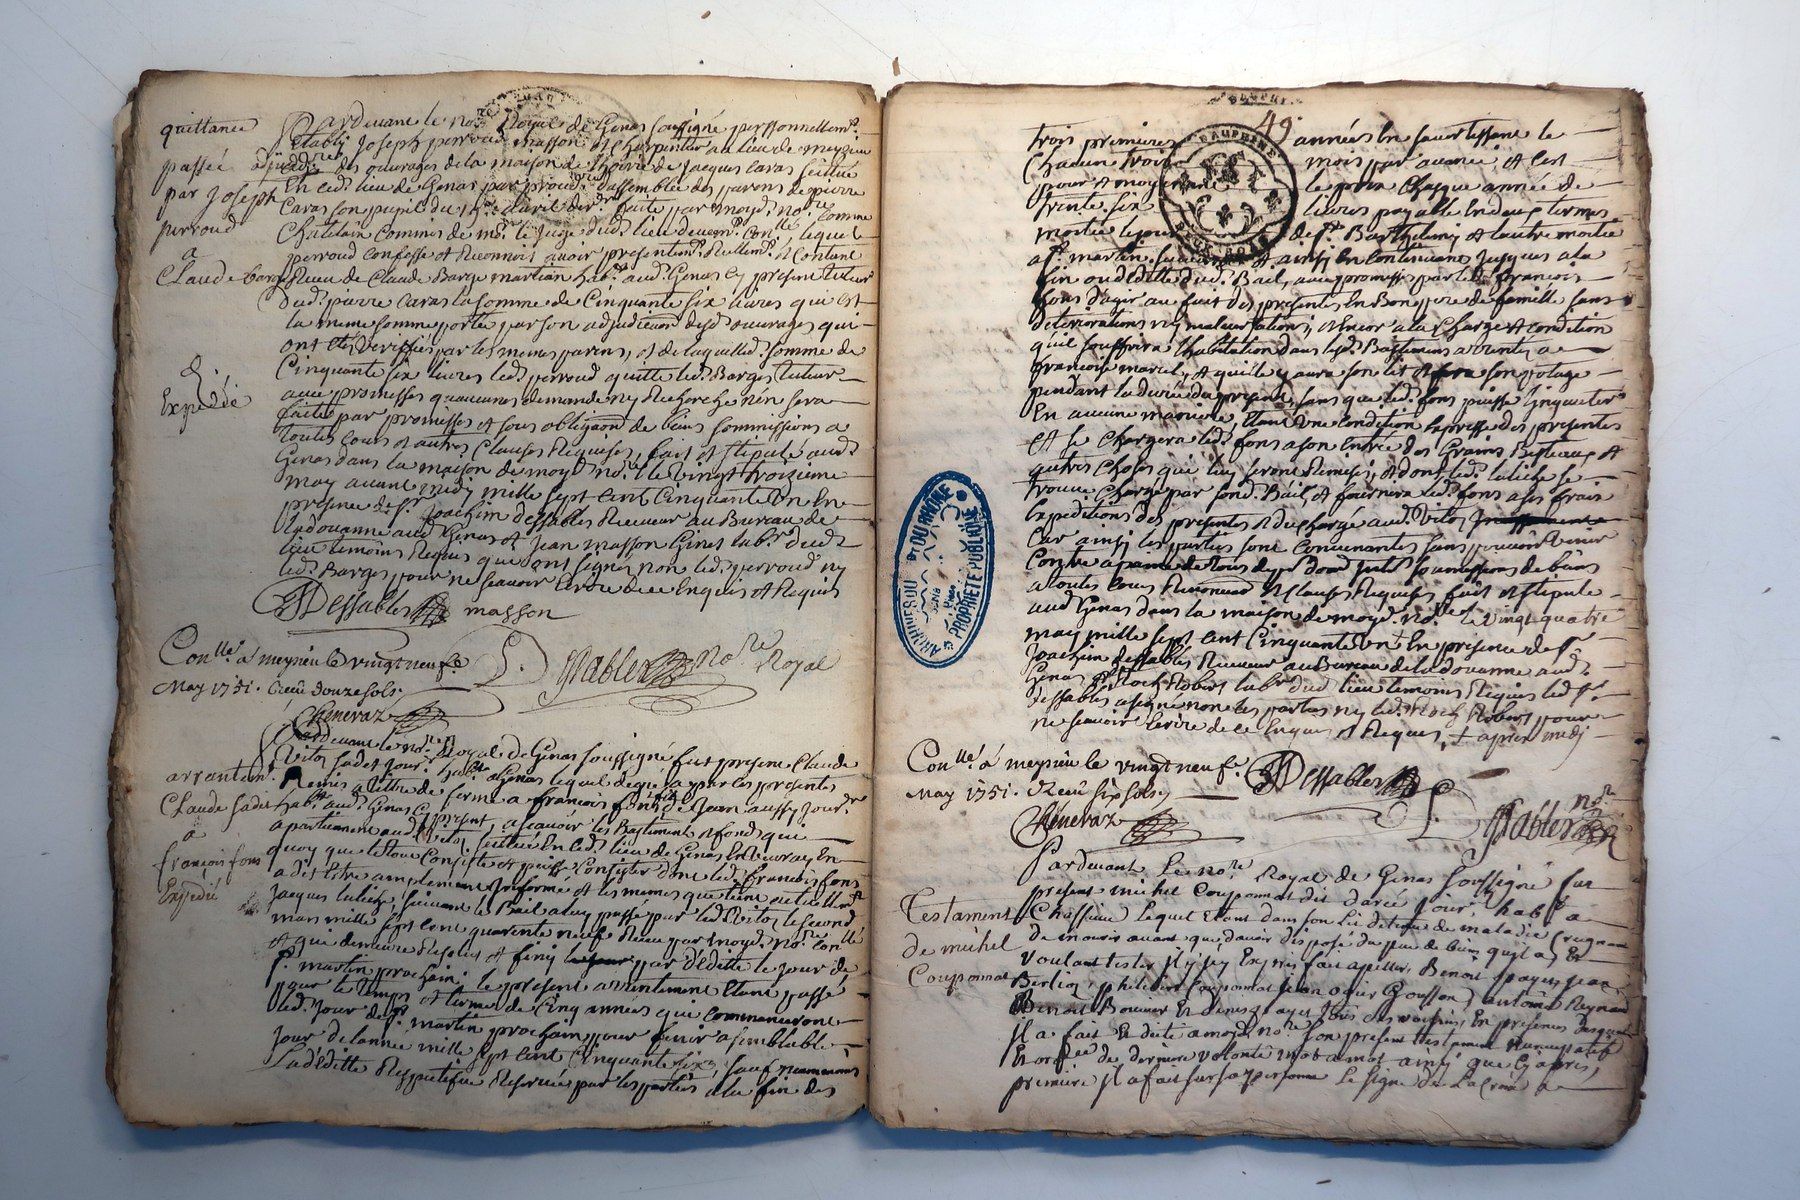 quittance
passée
par joseph
perroud
a
Claude barge
Expedié
Pardevant le no.re Royal de Genas soussigné personnellem.t
Etabli joseph perroud masson et charpentier au lieu de meyzieu
des ouvrages de la maison de de jacques caras scittué
En ced. lieu de Genas par d'assemblée des parens de pierre
caras son pupil du avril der.r faite par moyd. no.re comme
Chatelain commis de m.r le juge dud. lieu lequel
perroud confesse et Reconnoit avoir presentem.t Reellem.t et Contant
Receu de Claude Barge hab.t aud. Genas cy present tuteur
dud. pierre caras la somme de Cinquante six livres qui est
la meme somme portée par son adjudicaon desd. ouvrages qui
ont eté veriffiés par les memes parens, et de laquelled. somme de
Cinquante six livres led. perroud quitte led. Barge tuteur
avec promesses qu'aucunes demande ny Recherche n'en sera
faite par promisses et sous obligaon de biens soumissions a
toutes cours et autres Clauses Requises, fait et stipulé aud.
Genas dans la maison de moyd. no.re le vingt troizieme
may avant midy mille sept cent Cinquante Un En
presence de s.r joachim dessables Receveur au Bureau de
la douanne aud. Genas et jean masson Ginet lab.r dud.
lieu temoins Requis qui ont signés non led. perroud ny
led. Barge pour ne scavoir Ecrire de ce Enquis et Requis
JDessables masson
Con.llé a meyzieu le vingt neuf e
May 1751. Receu douze sols.
Dessables no.re Royal
Cheneraz
arrantem.t
Claude
a
françois fons
Expedié
Pardevant le no.re Royal de Genas soussigné fut present Claude
Vitoz jour.r hab.t a Genas lequel de gre a par les presentes
Remis a tittre de ferme a françois fons de jean aussy jour.r
hab.t aud. Genas cy present, a scavoir les Bastiment et fonds qui
apartiennent aud. Vitoz, scittués En ced. lieu de Genas
quoy que le tout Consiste et puisse Consister dont led. francois fons
a dit Etre amplement Informé et les memes que tient actuellem.t
jacques suivant le Bail a luy passé par led. Vitoz le second
mars mille sept cent quarente neuf Receu par moyd. no.re con.llé
et qui demeure Resous et finy par d'editte le jour de
s.t martin prochain, le present arrentement Etant passé
pour le temps et terme de Cinq années qui commanceront
led. jour de s.t martin prochain pour finir a semblable
jour de l'année mille sept cent Cinquante six, sauf neanmoins
La d'editte Respective Reservée par les parties a la fin des
49
trois premieres années En s'avertissant le
Chacun trois mois par avance, et c'est
pour et moyennant le prix Chaque année de
trente six livres payable En deux termes
moitié le jour de s.t Barthelemy et l'autre moitié
a s.t martin suivant et ainsy En Continuant jusques a la
fin ou d'editte dud. Bail, avec promisses par led. françois
fons d'agir au fait des presentes En Bon pere de famille sans
deteriorations ny malversations, et Encor a la Charge et condition
qu'il souffrira l'habitation dans lesd. Bastiments
françoise marcel, et qu'elle y aura son lit et fera son potage
pendant la durée du present, sans que led. fons puisse l'inquieter
En aucune maniere, Etant Une condition Expresse des presentes
Et se Chargera led. fons a son Entrée des Grains Bestiaux et
autres Choses qui luy seront Remises, et dont led. se
trouve Chargé par sond. Bail, et fournira led. fons a ses frais
Expeditions des presentes et du chargé aud. Vitoz
Car ainsy les parties sont Convenantes sans pouvoir venir
Contre a peine de tous dep.s dom.s int.s soumissions de biens
a toutes cours Renonciaon et clauses Requises fait et stipulé
aud. Genas dans la maison de moyd. no.re le vingt quatre
may mille sept cent Cinquante Un En presence de s.r
joachim dessables Receveur au Bureau de la douanne aud.
Genas et Roch Robert lab.r dud. lieu temoins Requis led. s.r
dessables a signé non les parties ny led. Roch Robert pour
ne scavoir Ecrire de ce Enquis et Requis, + apres midy
Con.llé a meyzieu le vingt neuf e
May 1751. Receu six sols.
JDessables
Cheneraz
Dessables no.re
Testament
de michel
Couponnat
Pardevant Le no.re Royal de Genas soussigné fut
present michel Couponnat dit darée jour.r hab.t a
Chassieu lequel Etant dans son lit detenu de maladie Craignant
de mourir avant que d'avoir disposé du peu de biens qu'il a, Et
Voulant tester il y a Exprés fait apeller, Benoit payet, jean
Berlioz, philibert Couponnat, jean ogier Antoine Reynaud
Benoit Bouvier En presences desquels
jl a fait Et dicté a moyd. no.re son present testament nuncupatif
Et ordée de derniere volonté mot a mot ainsy que cy apres,
premiere jl a fait sur sa personne Le signe de La Croix a
ARCHIVES DU D.T DU RHÔNE
PROPRIÉTÉ PUBLIQUE
DAUPHINE